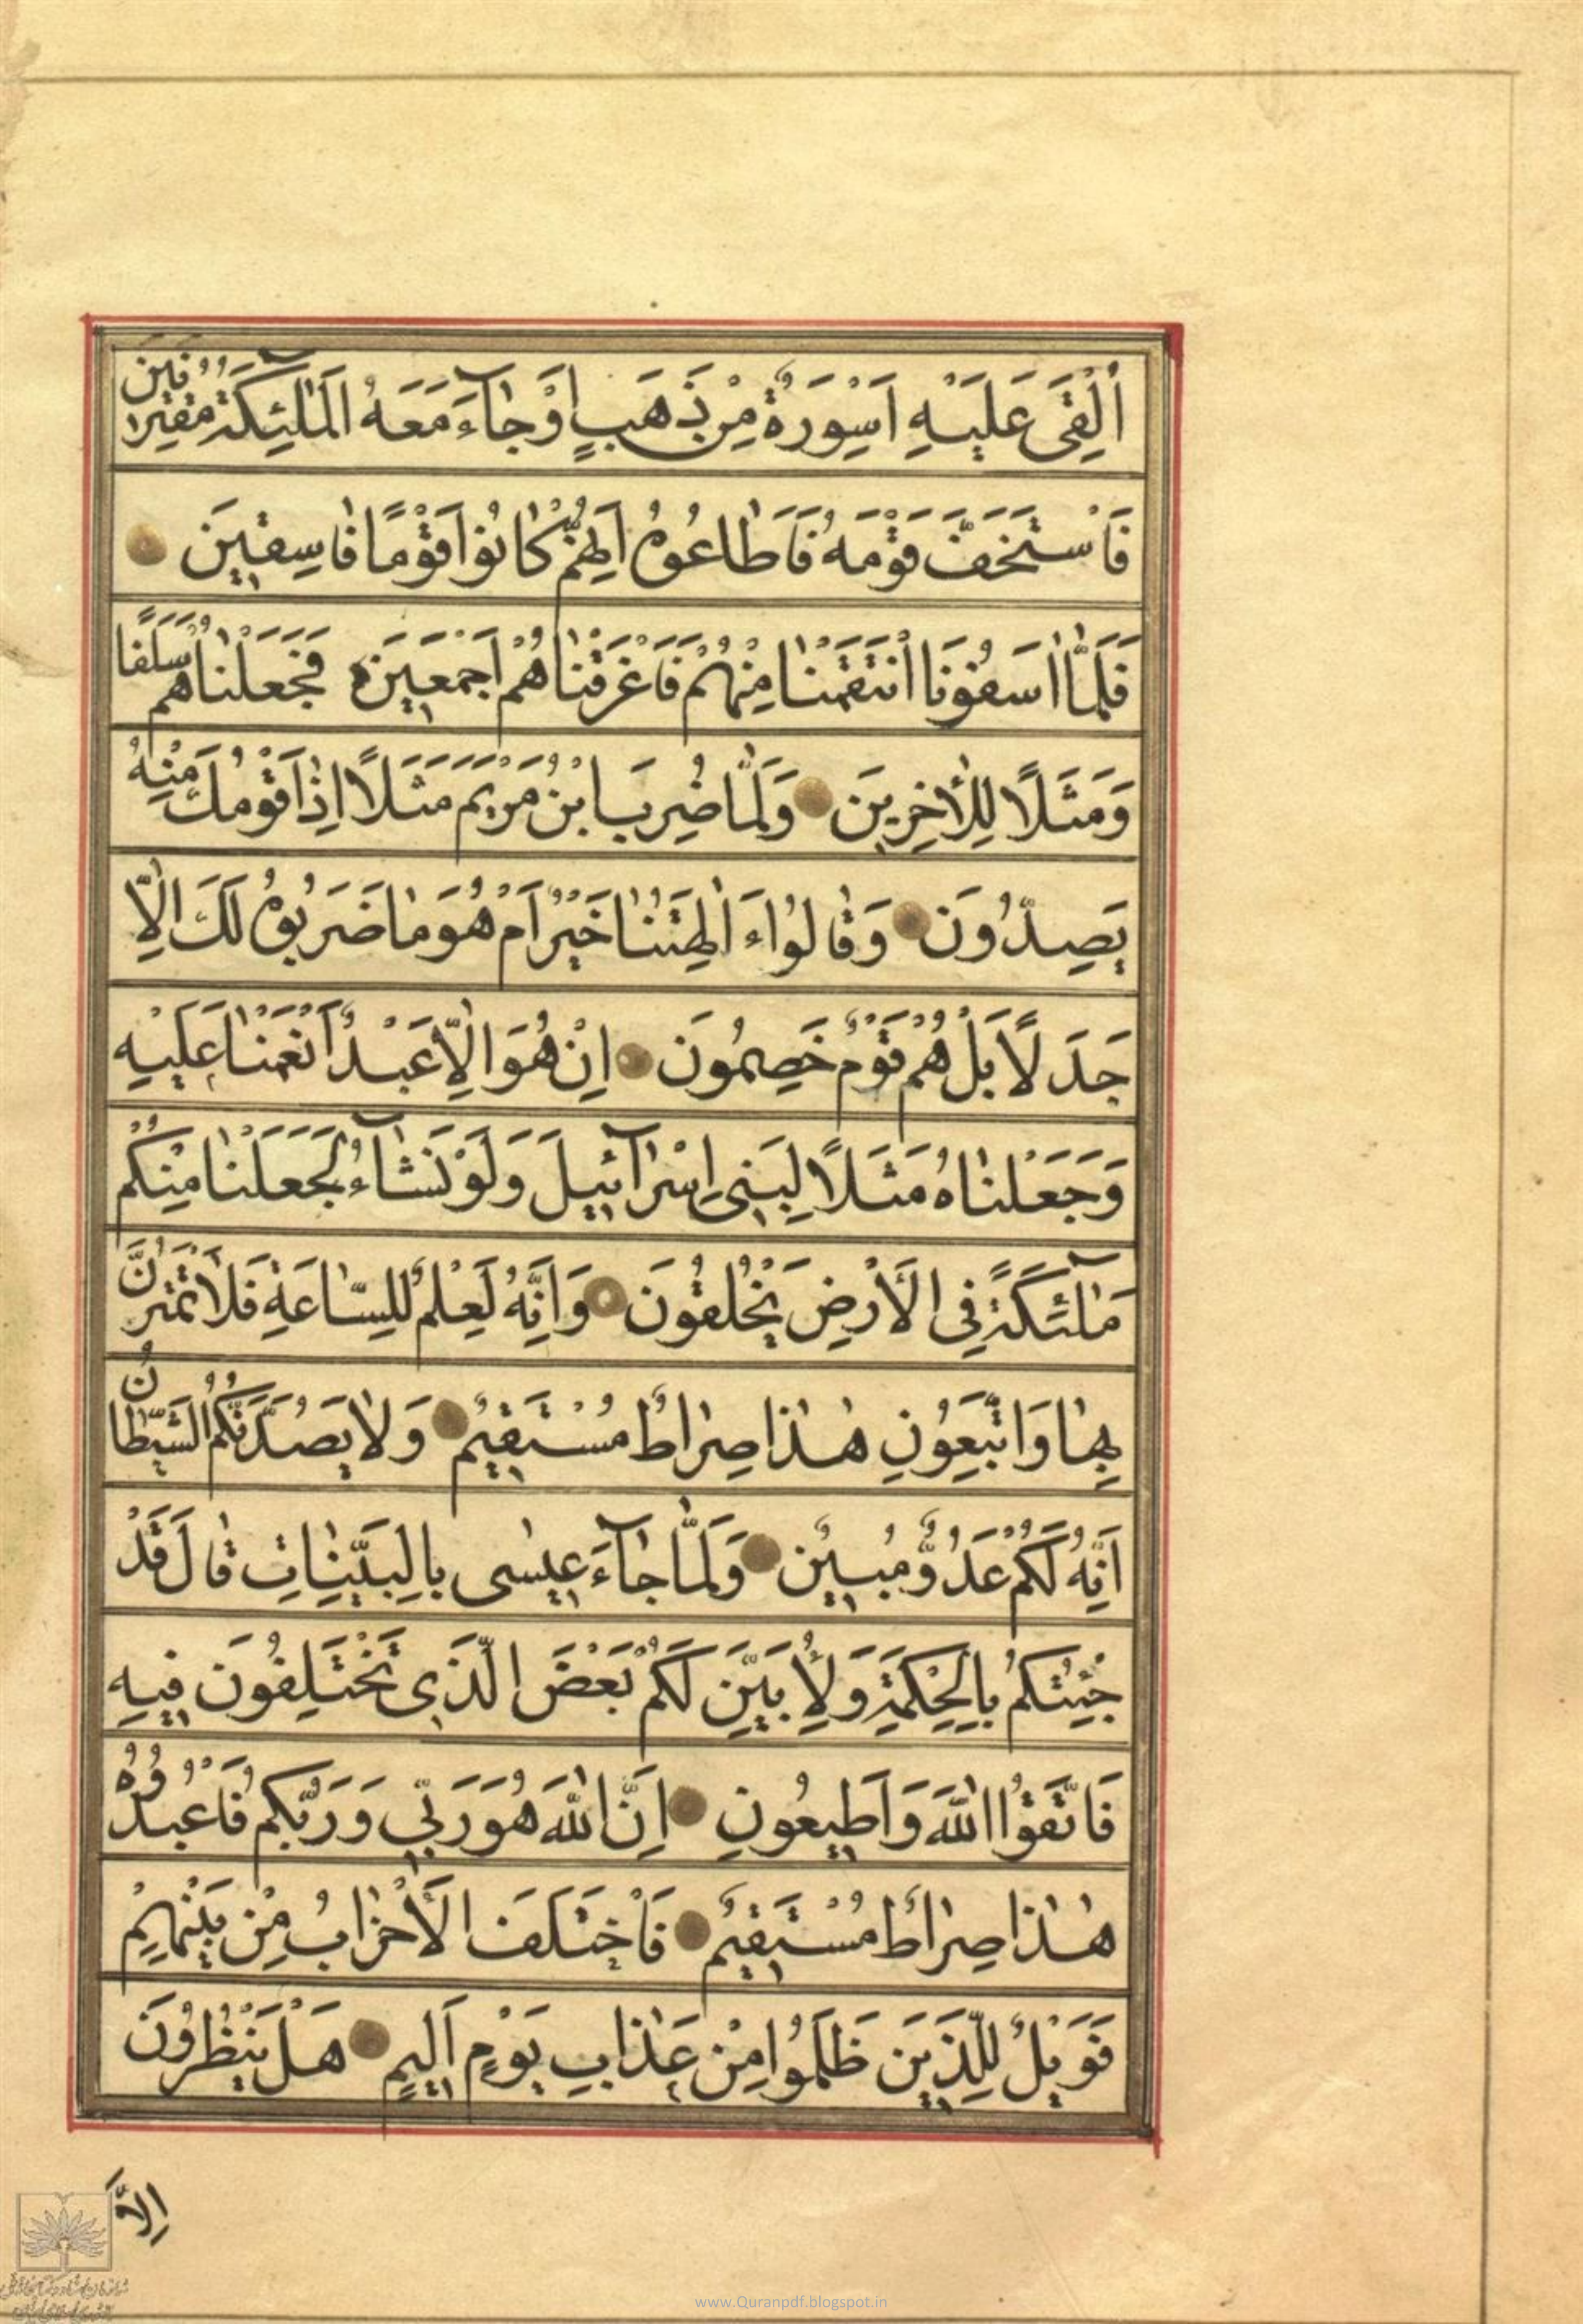 اُلْقِىَ عَلَيْهِ اَسْوِرَةٌ مِنْ ذَهَبٍ اَوْ جٰآءَ مَعَهُ الْمَلٰٓئِكَةُ مُقْتَرِنٖينَ
فَاسْتَخَفَّ قَوْمَهُ فَاَطٰاعُوهُ اِنَّهُمْ كٰانُوا قَوْمًا فٰاسِقٖينَ
فَلَمّٰا اٰسَفُونَا انْتَقَمْنٰا مِنْهُمْ فَاَغْرَقْنٰاهُمْ اَجْمَعٖينَ فَجَعَلْنٰاهُمْ سَلَفًا
وَمَثَلًا لِلْاٰخِرٖينَ وَلَمّٰا ضُرِبَ ابْنُ مَرْيَمَ مَثَلًا اِذٰا قَوْمُكَ مِنْهُ
يَصِدُّونَ وَقٰالُوا ءَاٰلِهَتُنٰا خَيْرٌ اَمْ هُوَ مٰا ضَرَبُوهُ لَكَ اِلّٰا
جَدَلًا بَلْ هُمْ قَوْمٌ خَصِمُونَ اِنْ هُوَ اِلّٰا عَبْدٌ اَنْعَمْنٰا عَلَيْهِ
وَجَعَلْنٰاهُ مَثَلًا لِبَنٖى اِسْرٰآئٖيلَ وَلَوْ نَشٰآءُ لَجَعَلْنٰا مِنْكُمْ
مَلٰٓئِكَةً فِى الْاَرْضِ يَخْلُفُونَ وَاِنَّهُ لَعِلْمٌ لِلسّٰاعَةِ فَلٰا تَمْتَرُنَّ
بِهٰا وَاتَّبِعُونِ هٰذٰا صِرٰاطٌ مُسْتَقٖيمٌ وَلٰا يَصُدَّنَّكُمُ الشَّيْطٰانُ
اِنَّهُ لَكُمْ عَدُوٌّ مُبٖينٌ وَلَمّٰا جٰآءَ عٖيسٰى بِالْبَيِّنٰاتِ قٰالَ قَدْ
جِئْتُكُمْ بِالْحِكْمَةِ وَلِاُبَيِّنَ لَكُمْ بَعْضَ الَّذٖى تَخْتَلِفُونَ فٖيهِ
فَاتَّقُوا اللّٰهَ وَاَطٖيعُونِ اِنَّ اللّٰهَ هُوَ رَبّٖى وَرَبُّكُمْ فَاعْبُدُوهُ
هٰذٰا صِرٰاطٌ مُسْتَقٖيمٌ فَاخْتَلَفَ الْاَحْزٰابُ مِنْ بَيْنِهِمْ
فَوَيْلٌ لِلَّذٖينَ ظَلَمُوا مِنْ عَذٰابِ يَوْمٍ اَلٖيمٍ هَلْ يَنْظُرُونَ
اِلَّا
www.Quranpdf.blogspot.in